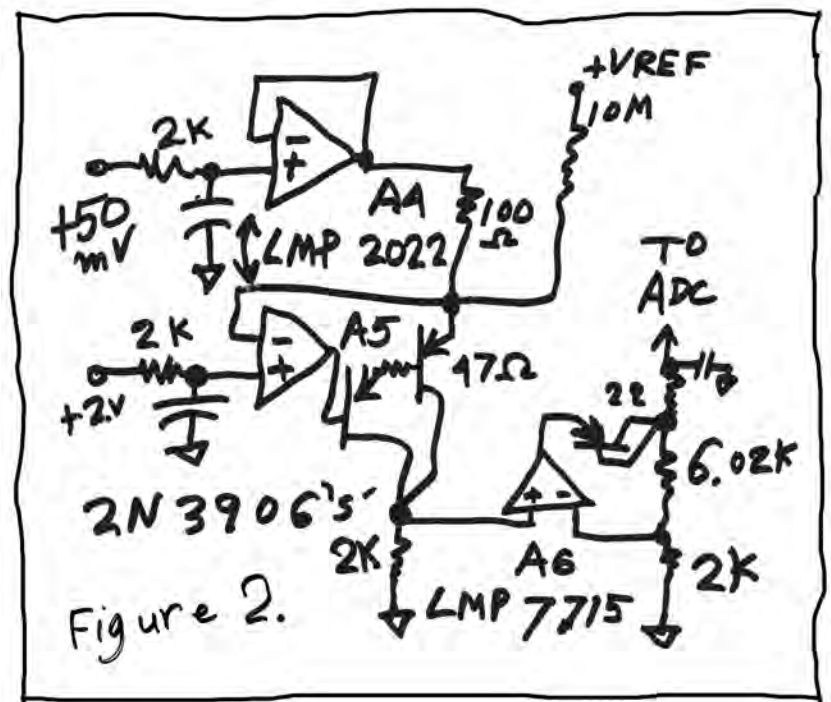 +VREF
10M
2K
-
+
+50
mV
A4
100
Ω
LMP 2022
TO
ADC
2K
A5
-
+
47Ω
+2.V
22
6.02K
2N3906's
+ -
2K
A6
2K
LMP 7715
Figure 2.